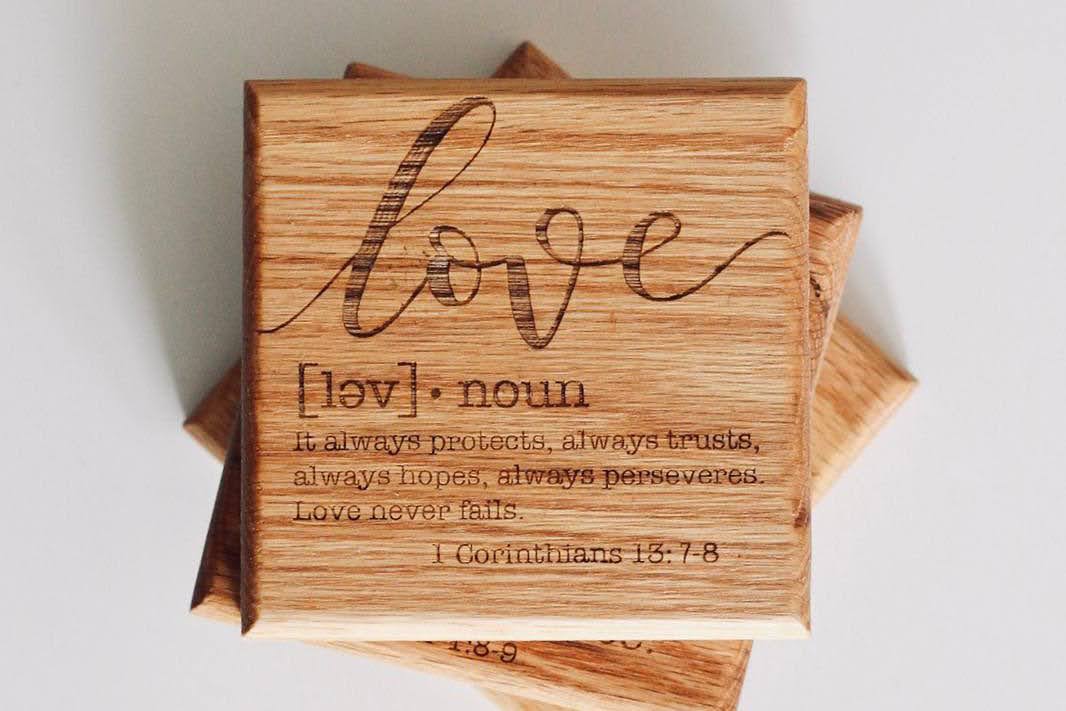 love
[ləv] · noun
It always protects, always trusts,
always hopes, always perseveres.
Love never fails.
1 Corinthians 13:7-8
1:8-9